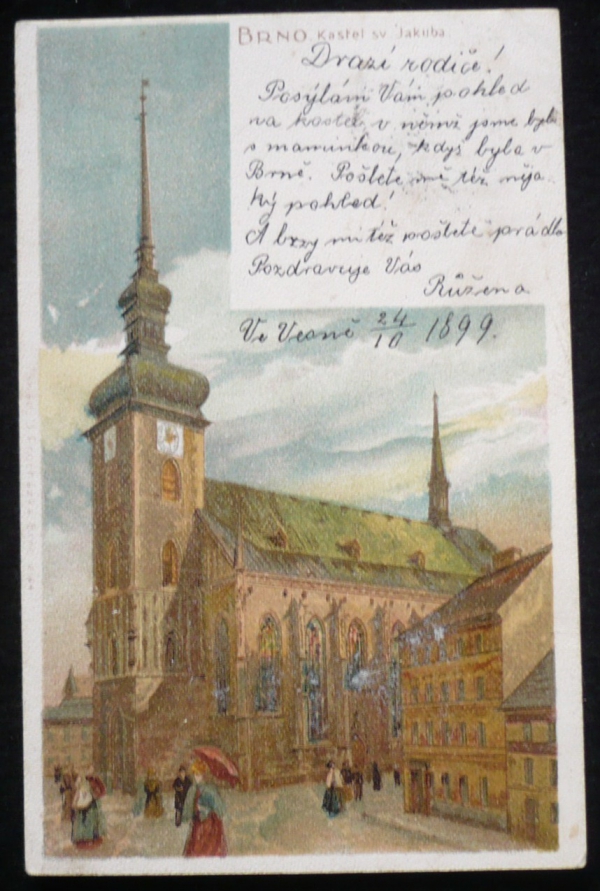 BRNO. Kostel sv. Jakuba.
Drazí rodiče!
Posýlám Vám pohled
na kostel, v němž jsme byli
s maminkou, když byla v
Brně. Pošlete mě též něja
ký pohled!
A brzy mi též pošlete prádlo
Pozdravuje Vás
Růžena
Ve 24/10 1899.